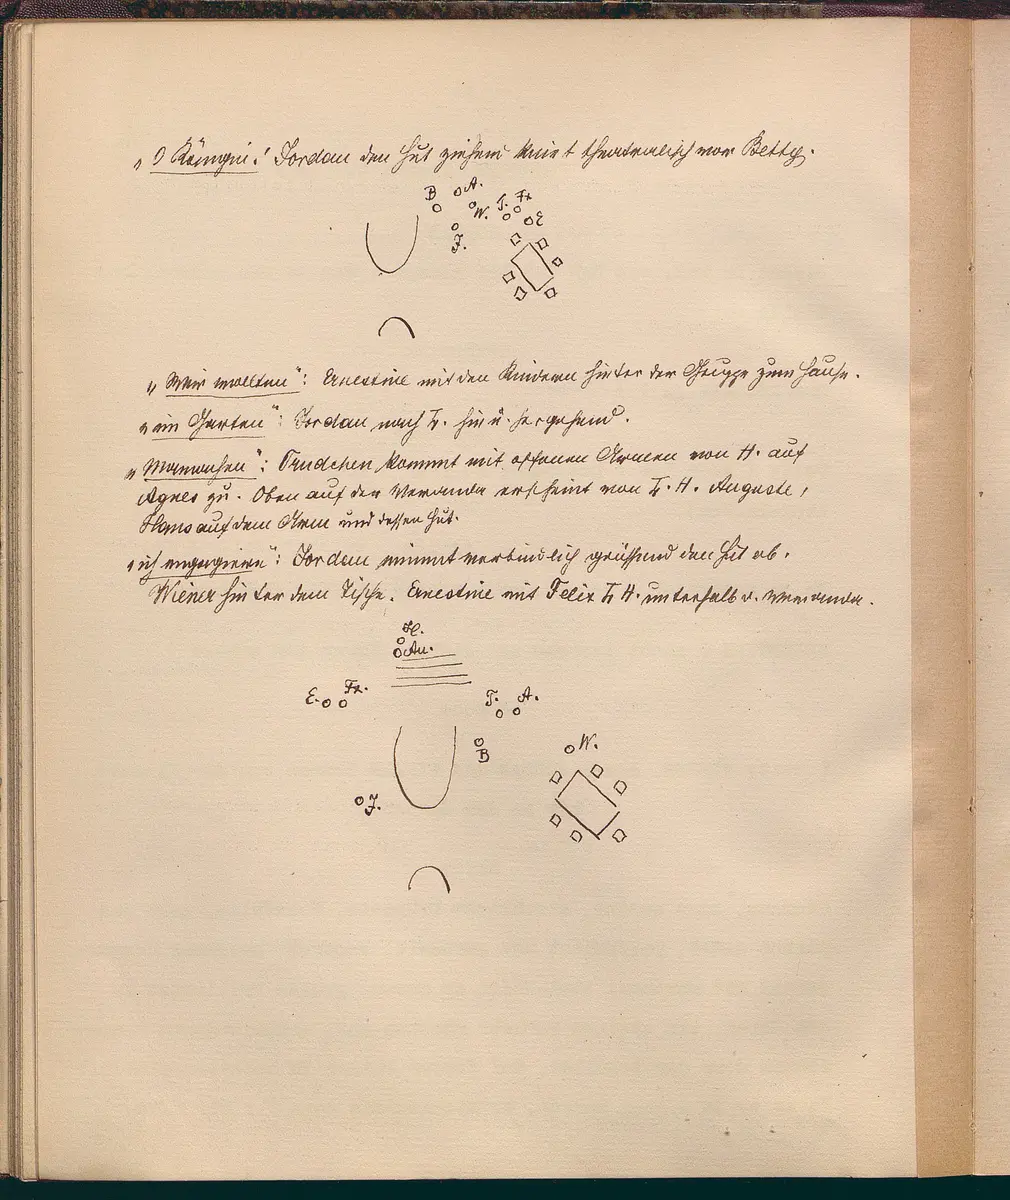 „O Königin! Jordan den Hut ziehend kniet theatralisch vor Betty.
B A.
W. T. Fx
E
J.
„Wir wollten“: Ernestine mit den Kindern hinter der Gruppe zum Hause.
„im Garten“: Jordan nach L. hin u. hergehend.
„Mamachen“: Trudchen kommt mit offenen Armen von H. auf
Agnes zu. Oben auf der Veranda erscheint von L. H. Auguste,
Hans auf dem Arm und dessen Hut.
„ich engagiere“: Jordan nimmt verbindlich grüssend den Hut ab.
Wiener hinter dem Tische. Ernestine mit Felix L H. unterhalb d. Veranda.
H.
Au.
E. Fx. T. A.
B W.
J.